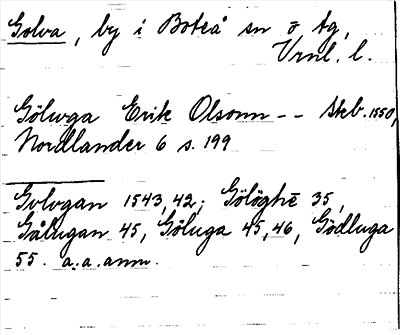 Golva, by i Boteå sn o tg,
Vrnl. l.
Göluga Erik Olsonn -- Skb. 1550,
Nordlander 6 s. 199
Golvgan 1543, 42; Gölöghē 35,
Gålugan 45, Göluga 45, 46, Gödluga
55. a.a.anm.